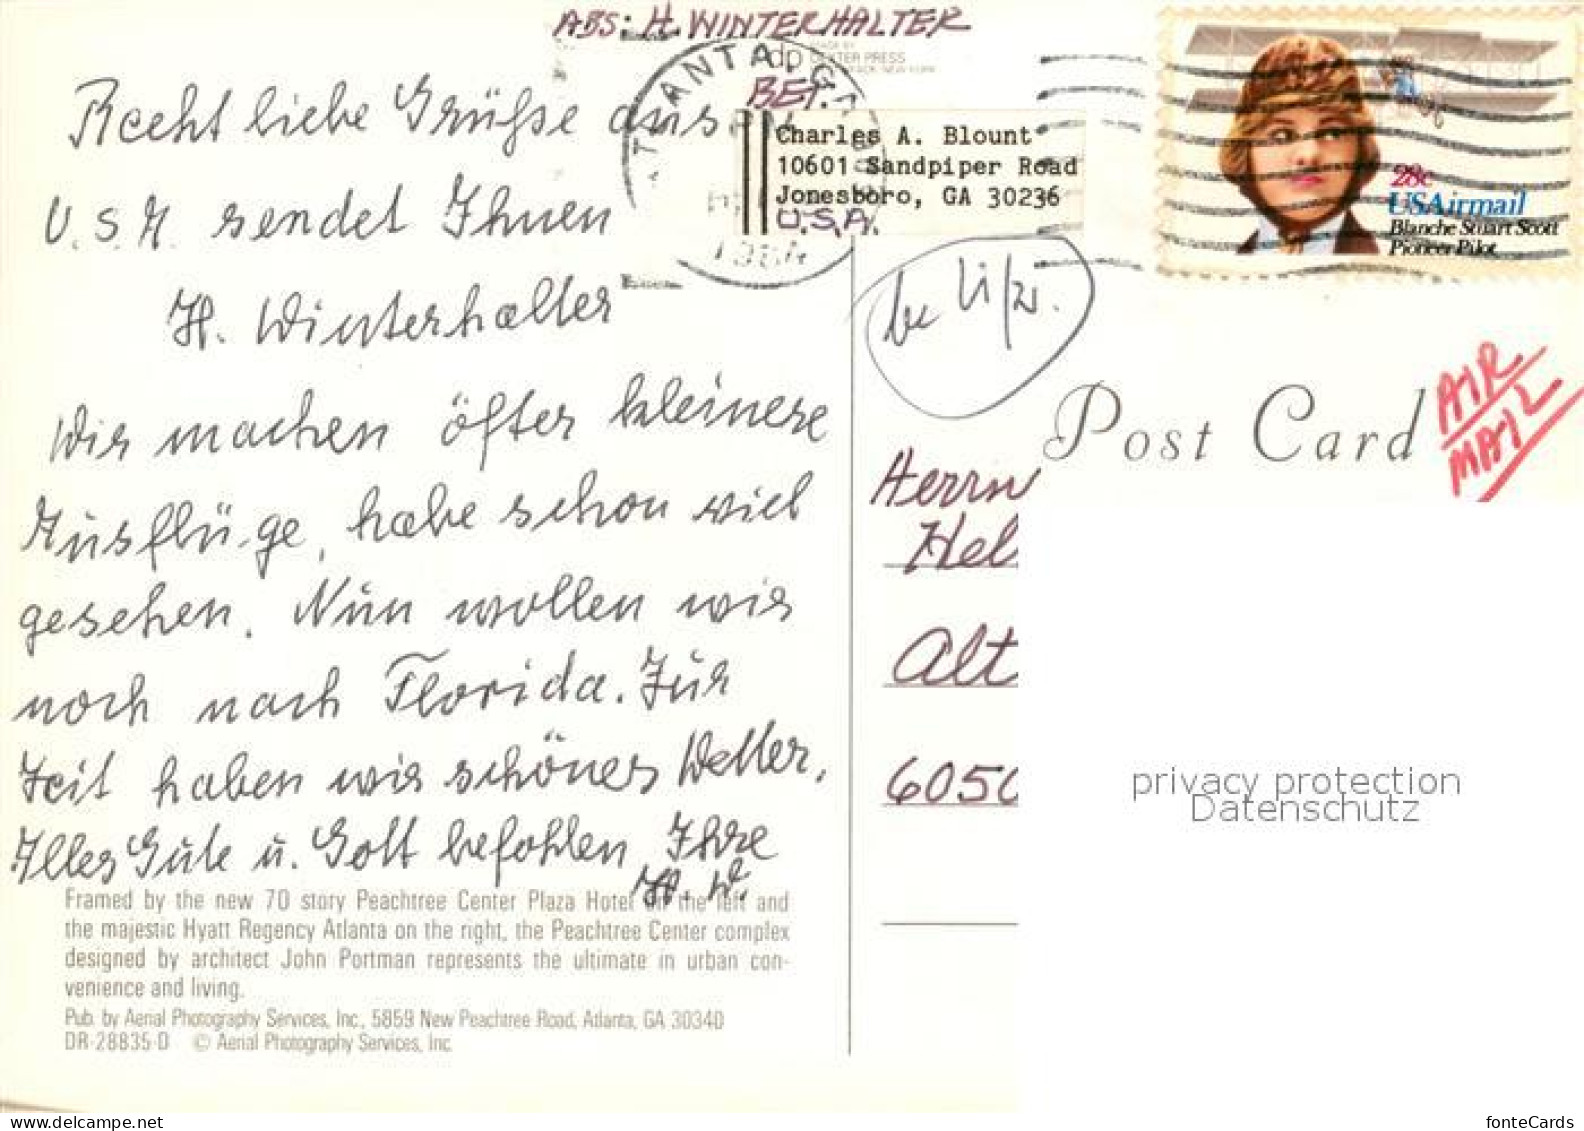 ABS: H. WINTERHALTER
DEXTER PRESS
dp
ATLANTA GA
BEI.
Charles A. Blount
10601 Sandpiper Road
Jonesboro, GA 30236
U.S.A.
28c
USAirmail
Blanche Stuart Scott
Pioneer Pilot
Recht liebe Grüße aus
U.S.A. sendet Ihnen
H. Winterhalter
Wir machen öfter kleinere
Ausflüge, habe schon viel
gesehen. Nun wollen wir
noch nach Florida. Zur
Zeit haben wir schönes Wetter.
Alles Gute u. Gott befohlen Ihre
H. W.
Post Card
AIR
MAIL
Herrn
Hel
Alt
605
privacy protection
Datenschutz
Framed by the new 70 story Peachtree Center Plaza Hotel on the left and
the majestic Hyatt Regency Atlanta on the right, the Peachtree Center complex
designed by architect John Portman represents the ultimate in urban con-
venience and living.
Pub. by Aerial Photography Services, Inc., 5859 New Peachtree Road, Atlanta, GA 30340
DR-28835-D © Aerial Photography Services, Inc.
www.delcampe.net
fonteCards